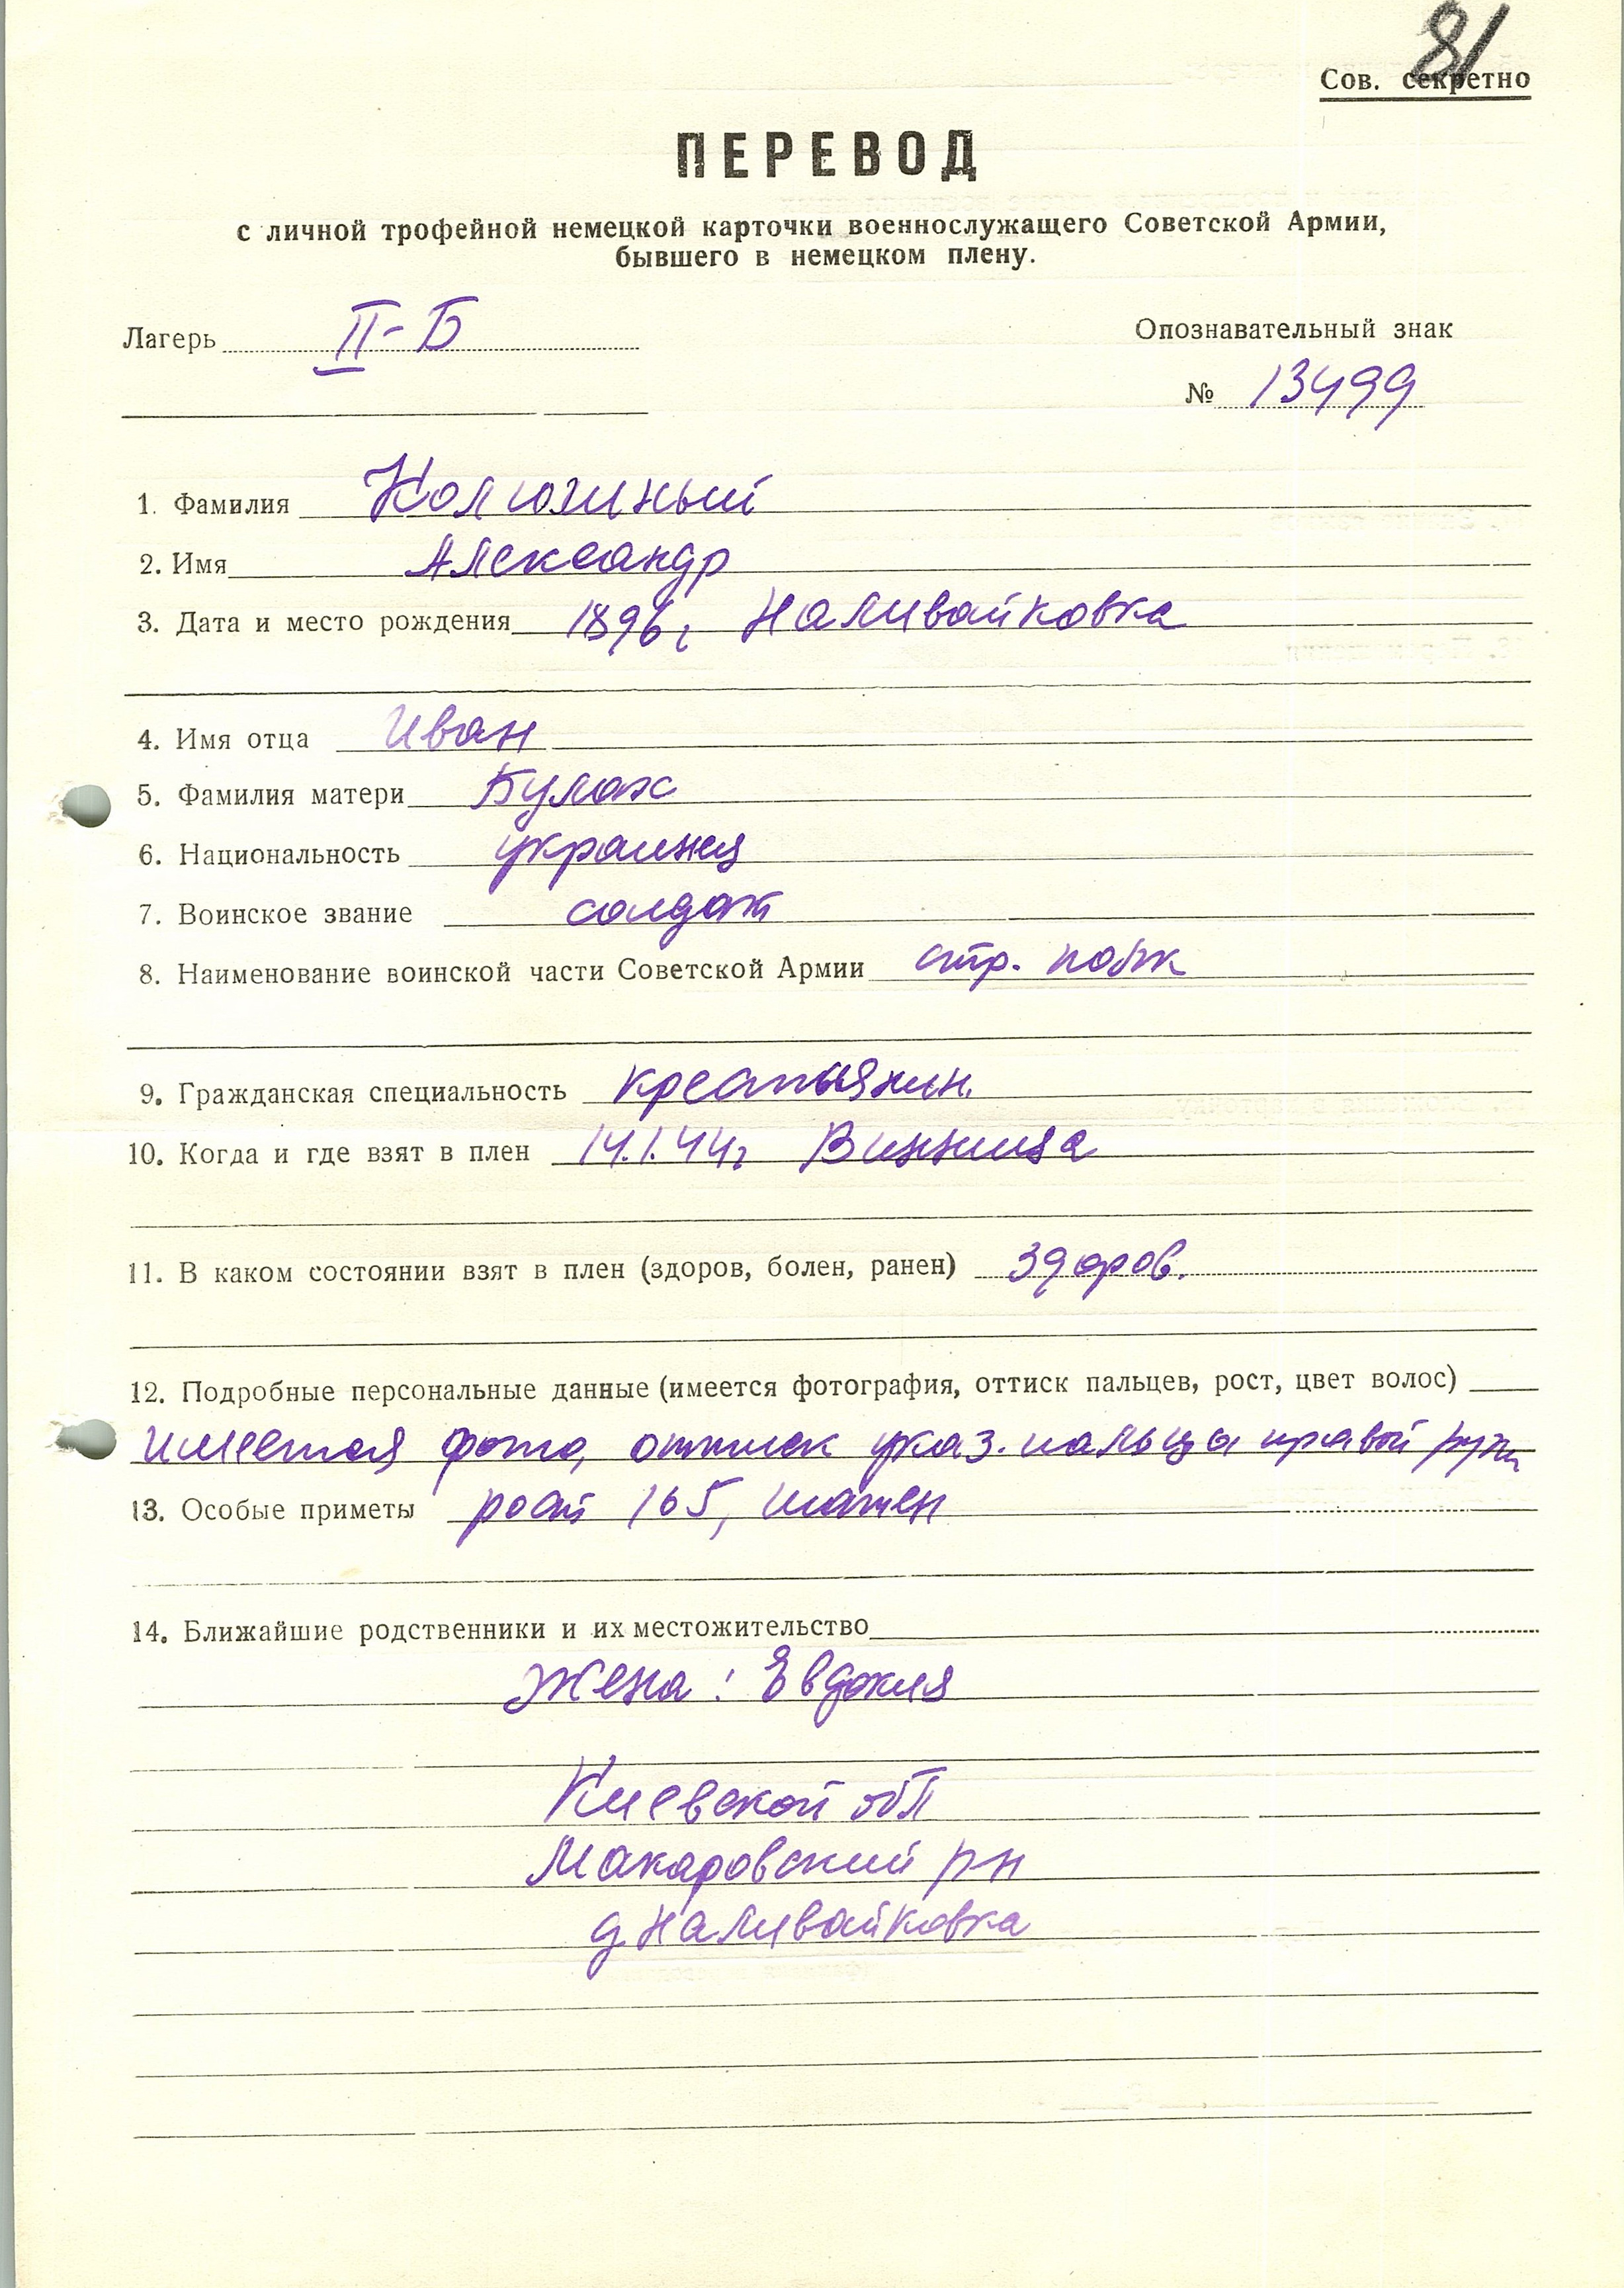 81
Сов. секретно
ПЕРЕВОД
с личной трофейной немецкой карточки военнослужащего Советской Армии,
бывшего в немецком плену.
Лагерь II-Б
Опознавательный знак
№ 13499
1. Фамилия
2. Имя Александр
3. Дата и место рождения 1896г Наливайковка
4. Имя отца Иван
5. Фамилия матери
6. Национальность украинец
7. Воинское звание солдат
8. Наименование воинской части Советской Армии стр. полк
9. Гражданская специальность крестьянин.
10. Когда и где взят в плен 14.1.44г Винница
11. В каком состоянии взят в плен (здоров, болен, ранен) здоров.
12. Подробные персональные данные (имеется фотография, оттиск пальцев, рост, цвет волос)
имеется фото, оттиск указ. пальца правой руки
13. Особые приметы рост 165, шатен
14. Ближайшие родственники и их местожительство
Жена: Евдокия
Киевской обл
Макаровский рн
д Наливайковка